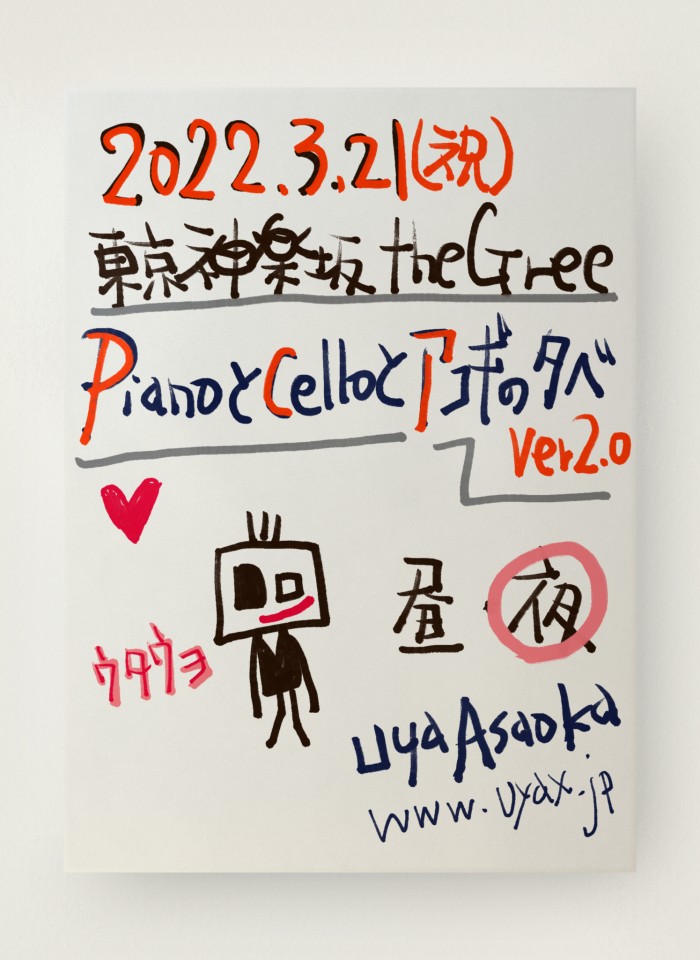 2022.3.21(祝)
東京神楽坂 theGlee
PianoとCelloとアコギの夕べ
ver2.0
昼 夜
ウタウヨ
uyaAsaoka
www.uyax.jp